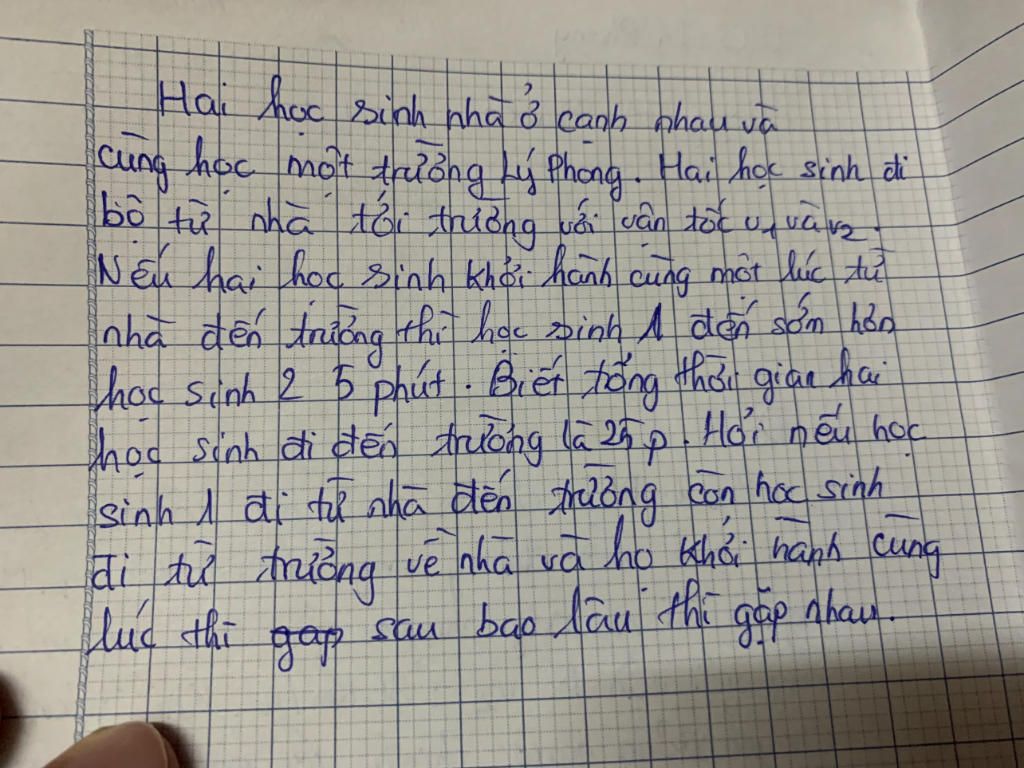 Hai học sinh nhà ở cạnh nhau và
cùng học một trường Lý Phong. Hai học sinh đi
bộ từ nhà tới trường với vận tốc v1 và v2.
Nếu hai học sinh khởi hành cùng một lúc từ
nhà đến trường thì học sinh 1 đến sớm hơn
học sinh 2 5 phút. Biết tổng thời gian hai
học sinh đi đến trường là 25 p. Hỏi nếu học
sinh 1 đi từ nhà đến trường còn học sinh
đi từ trường về nhà và họ khởi hành cùng
lúc thì gap sau bao lâu thì gặp nhau.